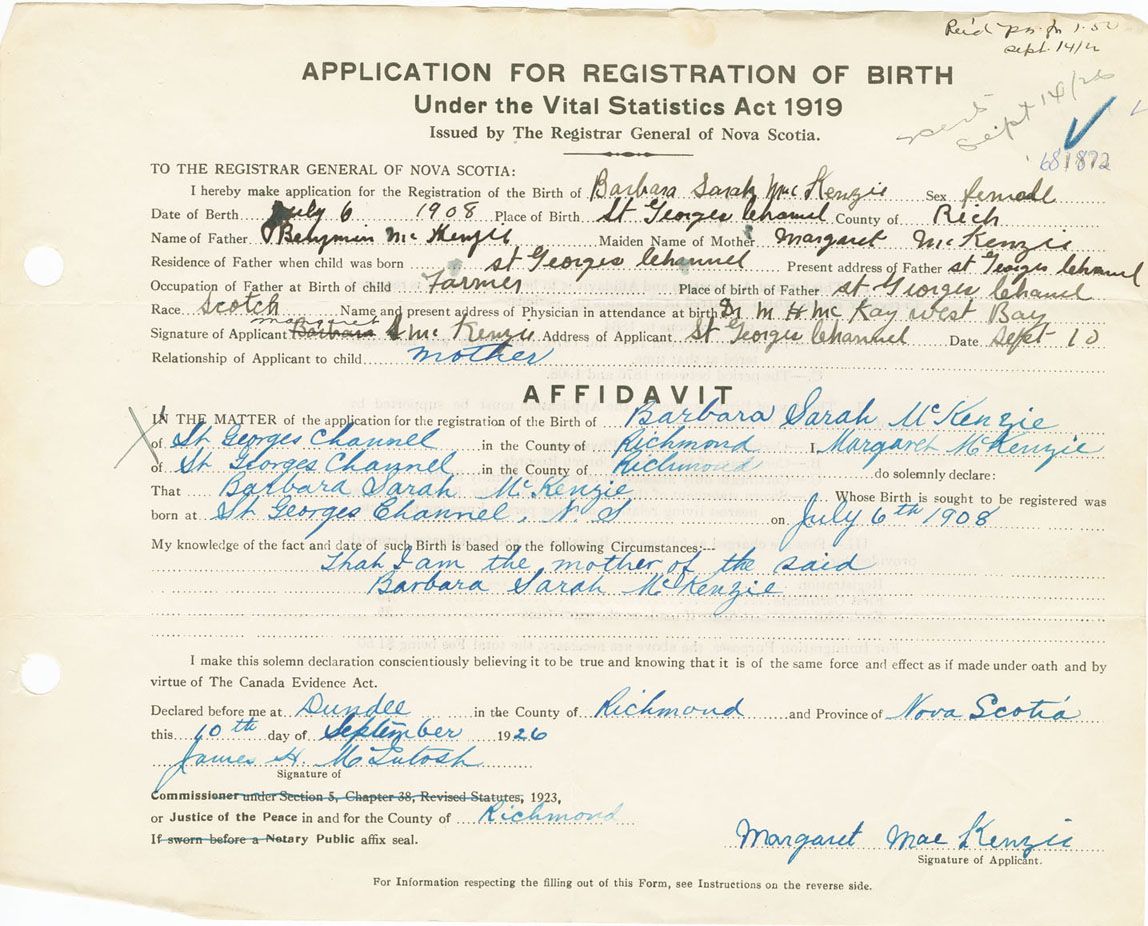 Rec'd
sept 14/26
APPLICATION FOR REGISTRATION OF BIRTH
Under the Vital Statistics Act 1919
Issued by The Registrar General of Nova Scotia.
sent
sept 14/26
681872
TO THE REGISTRAR GENERAL OF NOVA SCOTIA:
I hereby make application for the Registration of the Birth of Barbara Sarah Mc Kenzie Sex female
Date of Berth July 6 1908 Place of Birth St Georges Channel County of Rich
Name of Father Benjmin Mc Kenzie Maiden Name of Mother Margaret McKenzie
Residence of Father when child was born st Georges Channel Present address of Father st Georges Channel
Occupation of Father at Birth of child Farmer Place of birth of Father st Georges Channel
Race Scotch Name and present address of Physician in attendance at birth Dr M H Mc Kay west Bay
Signature of Applicant Barbara Margaret Mc Kenzie Address of Applicant St Georges Channel Date Sept 10
Relationship of Applicant to child mother
AFFIDAVIT
IN THE MATTER of the application for the registration of the Birth of Barbara Sarah McKenzie
of St Georges Channel in the County of Richmond I Margaret McKenzie
of St Georges Channel in the County of Richmond do solemnly declare:
That Barbara Sarah McKenzie Whose Birth is sought to be registered was
born at St Georges Channel, N.S on July 6th 1908
My knowledge of the fact and date of such Birth is based on the following Circumstances:---
That I am the mother of the said
Barbara Sarah McKenzie
I make this solemn declaration conscientiously believing it to be true and knowing that it is of the same force and effect as if made under oath and by
virtue of The Canada Evidence Act.
Declared before me at Dundee in the County of Richmond and Province of Nova Scotia
this 10th day of September 1926
James H. McIntosh
Signature of
Commissioner under Section 5, Chapter 38, Revised Statutes, 1923,
or Justice of the Peace in and for the County of Richmond
If sworn before a Notary Public affix seal.
Margaret Mac Kenzie
Signature of Applicant.
For Information respecting the filling out of this Form, see Instructions on the reverse side.